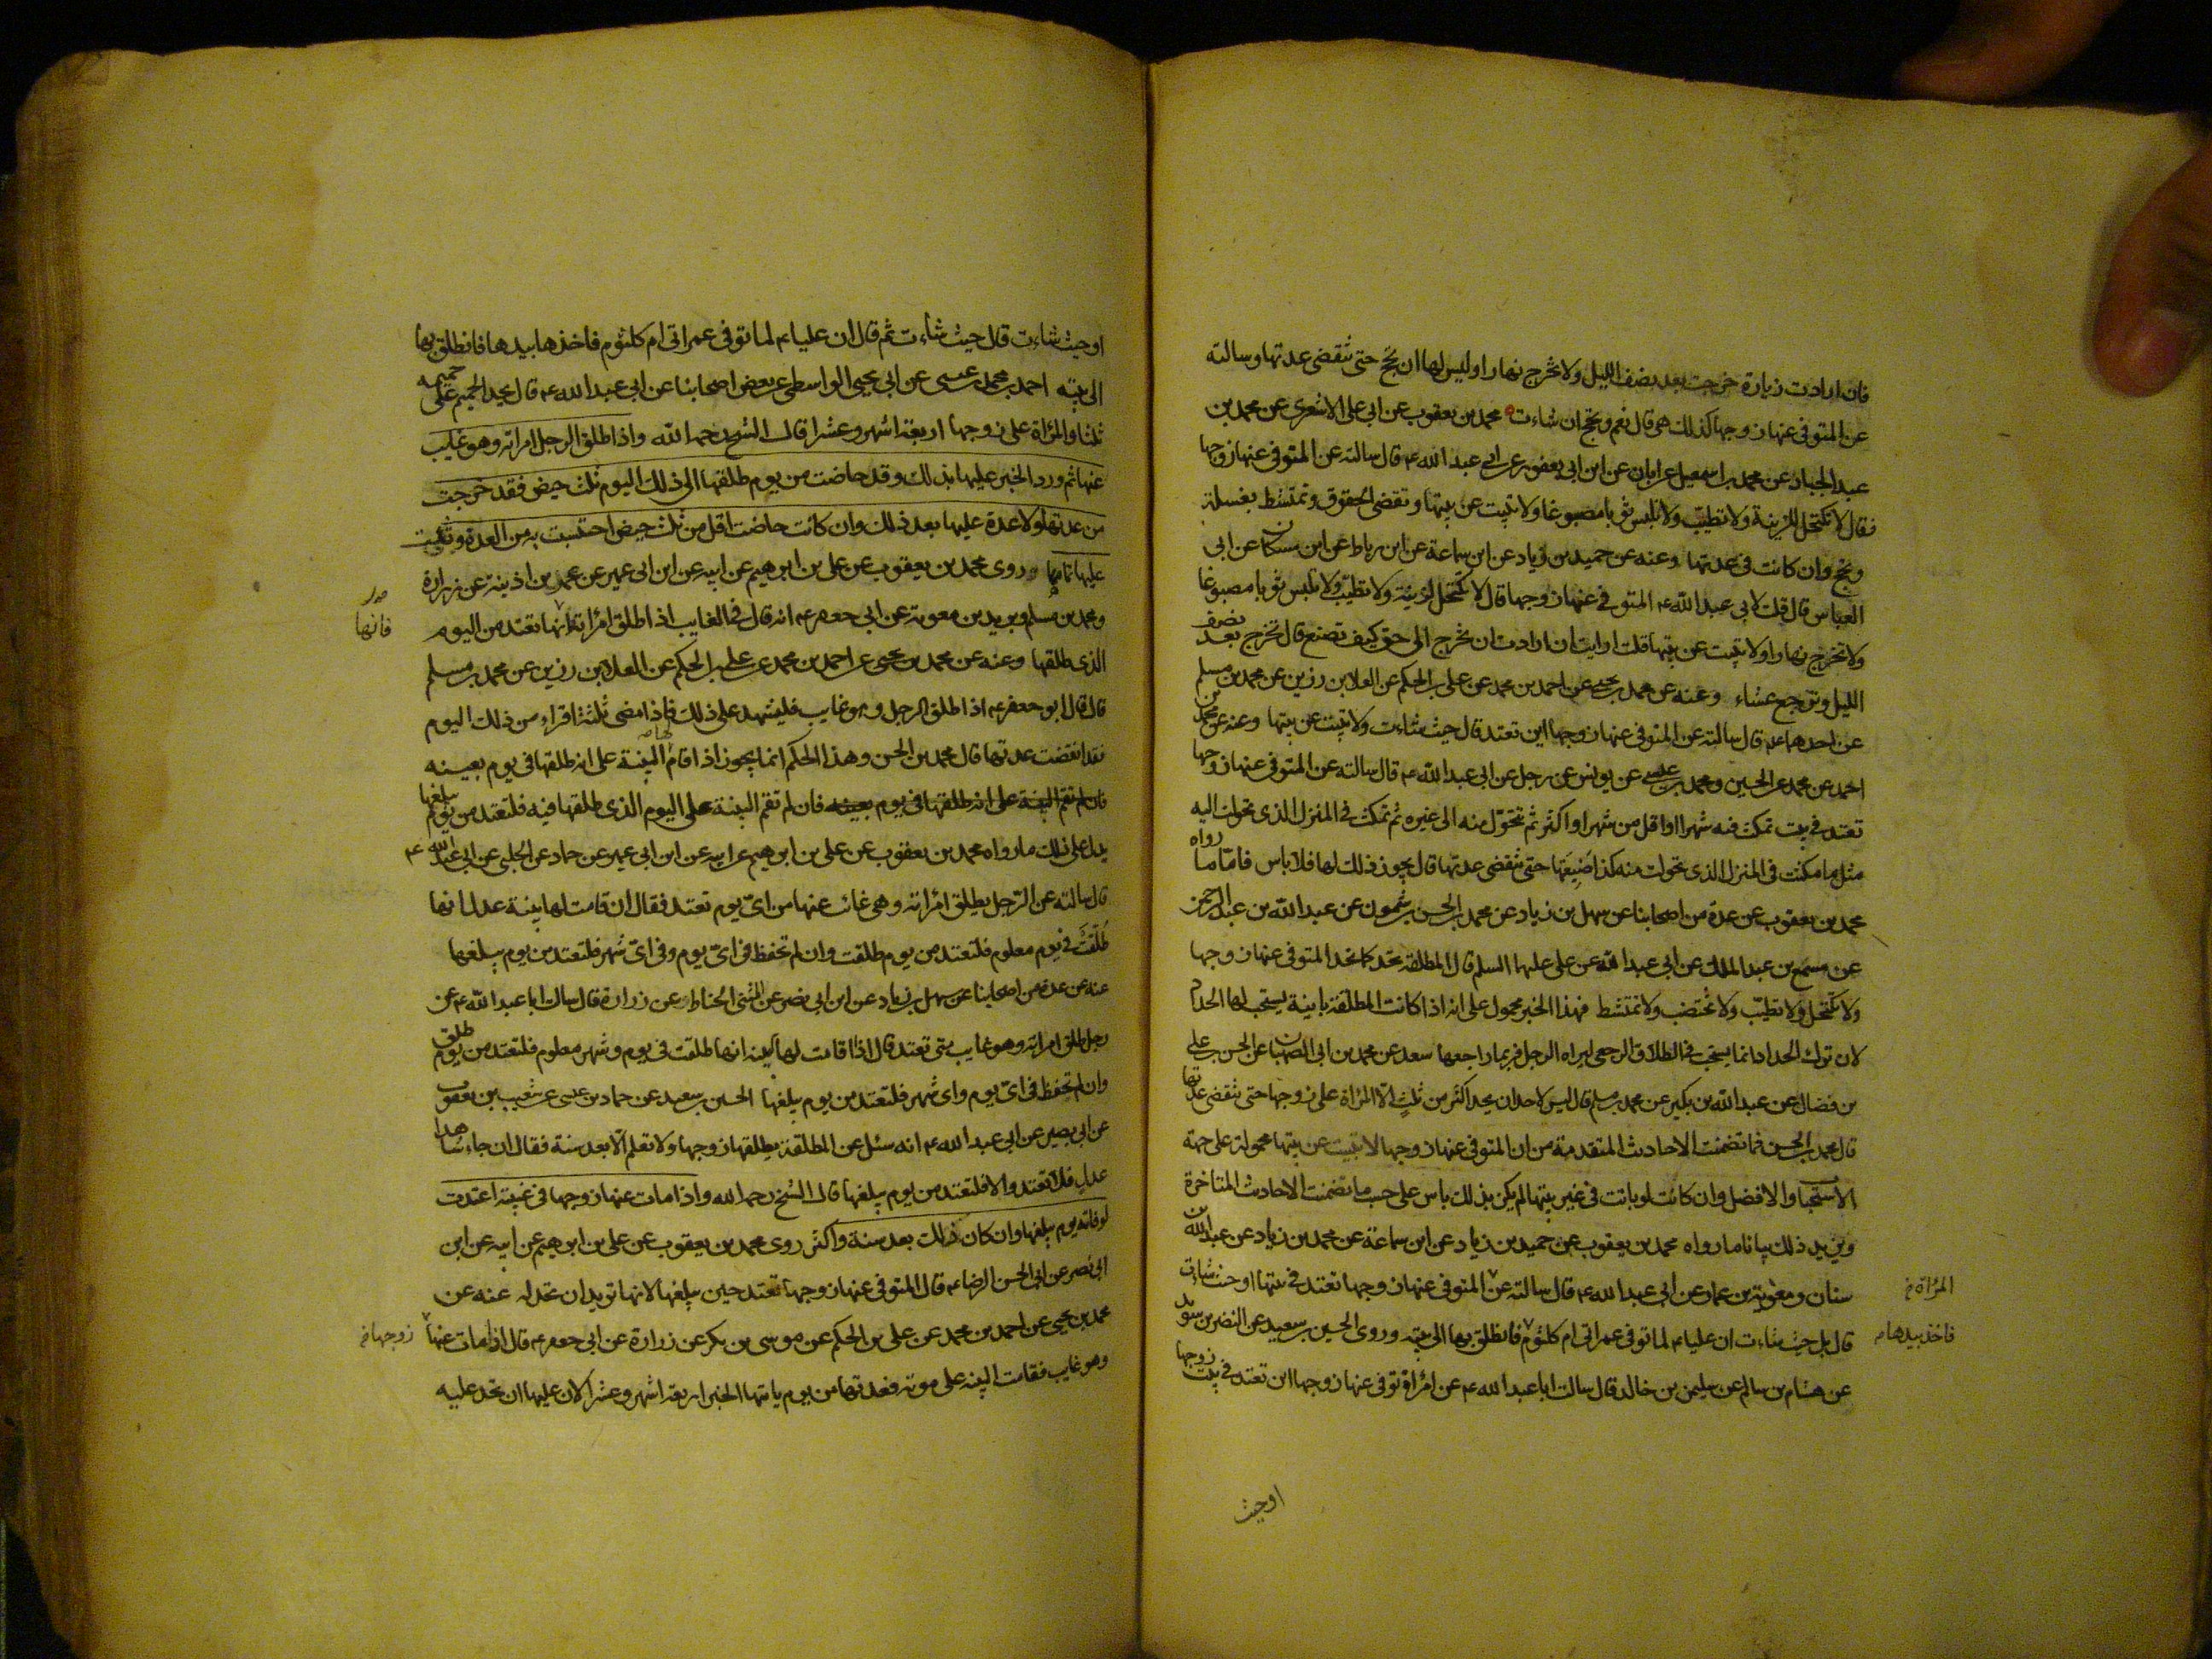 فان ارادت زيارة خرجت بعد نصف الليل ولا تخرج نهارا وليس لها ان تحج حتى تنقضى عدتها وسالته
عن المتوفى عنها زوجها كذلك هى قال نعم وتحج ان شاءت محمد بن يعقوب عن ابى على الاشعرى عن محمد بن
عبد الجبار عن محمد بن اسمعيل عن ابان عن ابن ابى يعفور عن ابى عبد الله ع قال سالته عن المتوفى عنها زوجها
فقال لا تكتحل للزينة ولا تطيب ولا تلبس ثوبا مصبوغا ولا تبيت عن بيتها وتقضى الحقوق وتمتشط بغسلة
وتحج وان كانت فى عدتها وعنه عن حميد بن زياد عن ابن سماعة عن ابن رباط عن ابن مسكان عن ابى
العباس قال قلت لابى عبد الله ع المتوفى عنها زوجها قال لا تكتحل لزينة ولا تطيب ولا تلبس ثوبا مصبوغا
ولا تخرج نهارا ولا تبيت عن بيتها قلت ارايت ان ارادت ان تخرج الى حق كيف تصنع قال تخرج بعد نصف
الليل وترجع عشاء وعنه عن محمد بن يحيى عن احمد بن محمد عن على بن الحكم عن العلا بن رزين عن محمد بن مسلم
عن احدهما ع قال سالته عن المتوفى عنها زوجها اين تعتد قال حيث شاءت ولا تبيت عن بيتها وعنه عن محمد بن
احمد عن محمد عن الحسين ومحمد بن عيسى عن يونس عن رجل عن ابى عبد الله ع قال سالته عن المتوفى عنها زوجها
تعتد فى بيت تمكث فيه شهرا او اقل من شهر او اكثر ثم تتحول منه الى غيره ثم تمكث فى المنزل الذى تحولت اليه
مثل ما مكثت فى المنزل الذى تحولت منه كذا صنيعها حتى تنقضى عدتها قال يجوز ذلك لها فلا باس فاما ما رواه
محمد بن يعقوب عن عدة من اصحابنا عن سهل بن زياد عن محمد بن الحسن بن شمون عن عبد الله بن عبد الرحمن
عن مسمع بن عبد الملك عن ابى عبد الله عن على عليهما السلم قال المطلقة تحد كما تحد المتوفى عنها زوجها
ولا تكتحل ولا تطيب ولا تختضب ولا تمتشط فهذا الخبر محمول على انه اذا كانت المطلقة باينة يستحب لها الحداد
لان ترك الحداد انما يستحب فى الطلاق الرجعى ليراه الرجل فربما راجعها سعد عن محمد بن ابى الصهبان عن الحسن بن على
بن فضال عن عبد الله بن بكير عن محمد بن مسلم قال ليس لاحد ان يحد اكثر من ثلث الا المراة على زوجها حتى تنقضى عدتها
قال محمد بن الحسن فما تضمنت الاحاديث المتقدمة من ان المتوفى عنها زوجها لا تبيت عن بيتها محمولة على جهة
الاستحباب والافضل وان كانت لو باتت فى غير بيتها لم يكن بذلك باس على حسب ما تضمنت الاحاديث المتاخرة
ويزيد ذلك بيانا ما رواه محمد بن يعقوب عن حميد بن زياد عن ابن سماعة عن محمد بن زياد عن عبد الله بن
سنان ومعوية بن عمار عن ابى عبد الله ع قال سالته عن المتوفى عنها زوجها تعتد فى بيتها او حيث شاءت
المرأة خ
قال بل حيث شاءت ان عليا ع لما توفى عمر اتى ام كلثوم فانطلق بها الى بيته وروى الحسين بن سعيد عن النضر بن سويد
فاخذ بيدها
عن هشام بن سالم عن سليمن بن خالد قال سالت ابا عبد الله ع عن امرأة توفى عنها زوجها اين تعتد فى بيت زوجها
او حيث
او حيث شاءت قال حيث شاءت ثم قال ان عليا ع لما توفى عمر اتى ام كلثوم فاخذها بيدها فانطلق بها
الى بيته احمد بن محمد بن عيسى عن ابى يحيى الواسطى عن بعض اصحابنا عن ابى عبد الله ع قال يحد الحميم على حميمه
ثلثا والمرأة على زوجها اربعة اشهر وعشرا قال الشيخ رحمه الله واذا طلق الرجل امراته وهو غايب
عنها ثم ورد الخبر عليها بذلك وقد حاضت من يوم طلقها الى ذلك اليوم ثلث حيض فقد خرجت
من عدتها ولا عدة عليها بعد ذلك وان كانت حاضت اقل من ثلث حيض احتسبت به من العدة وتبنت
عليها تمامها روى محمد بن يعقوب عن على بن ابرهيم عن ابيه عن ابن ابى عمير عن عمر بن اذينة عن زرارة
ومحمد بن مسلم وبريد بن معوية عن ابى جعفر ع انه قال فى الغايب اذا طلق امرأته انها تعتد من اليوم
فانها
الذى طلقها وعنه عن محمد بن يحيى عن احمد بن محمد عن على بن الحكم عن العلا بن رزين عن محمد بن مسلم
قال قال ابو جعفر ع اذا طلق الرجل وهو غايب فليشهد على ذلك فاذا مضى ثلثة اقراء من ذلك اليوم
فقد انقضت عدتها قال محمد بن الحسن وهذا الحكم انما يجوز اذا قام لها البينة على انه طلقها فى يوم بعينه
فان لم تقم البينة على انه طلقها فى يوم بعينه فان لم تقم البينة على اليوم الذى طلقها فيه فلتعتد من يوم يبلغها
يدل على ذلك ما رواه محمد بن يعقوب عن على بن ابرهيم عن ابيه عن ابن ابى عمير عن حماد عن الحلبى عن ابى عبد الله ع
قال سالته عن الرجل يطلق امرأته وهى غائب عنها من اى يوم تعتد فقال ان قامت لها بينة عدل انها
طلقت فى يوم معلوم فلتعتد من يوم طلقت وان لم تحفظ فى اى يوم وفى اى شهر فلتعتد من يوم يبلغها
عنه عن عدة من اصحابنا عن سهل بن زياد عن ابن ابى نصر عن المثنى الحناط عن زرارة قال سالت ابا عبد الله ع عن
رجل طلق امراته وهو غايب متى تعتد قال اذا قامت لها بينة انها طلقت فى يوم وشهر معلوم فلتعتد من يوم طلق
وان لم تحفظ فى اى يوم واى شهر فلتعتد من يوم يبلغها الحسين بن سعيد عن حماد بن عيسى عن شعيب بن يعقوب
عن ابى بصير عن ابى عبد الله ع انه سئل عن المطلقة يطلقها زوجها ولا تعلم الا بعد سنة فقال ان جاء شاهدا
عدل فلا تعتد والا فلتعتد من يوم يبلغها قال الشيخ رحمه الله واذا مات عنها زوجها فى غيبته اعتدت
لوفاته يوم يبلغها وان كان ذلك بعد سنة واكثر روى محمد بن يعقوب عن على بن ابرهيم عن ابيه عن ابن
ابى نصر عن ابى الحسن الرضا ع قال المتوفى عنها زوجها تعتد حين يبلغها لانها تريد ان تحد له عنه عن
محمد بن يحيى عن احمد بن محمد عن على بن الحكم عن موسى بن بكر عن زرارة عن ابى جعفر ع قال اذا مات عنها
زوجها خ
وهو غايب فقامت البينه على موته فعدتها من يوم ياتيها الخبر اربعة اشهر وعشرا لان عليها ان تحد عليه